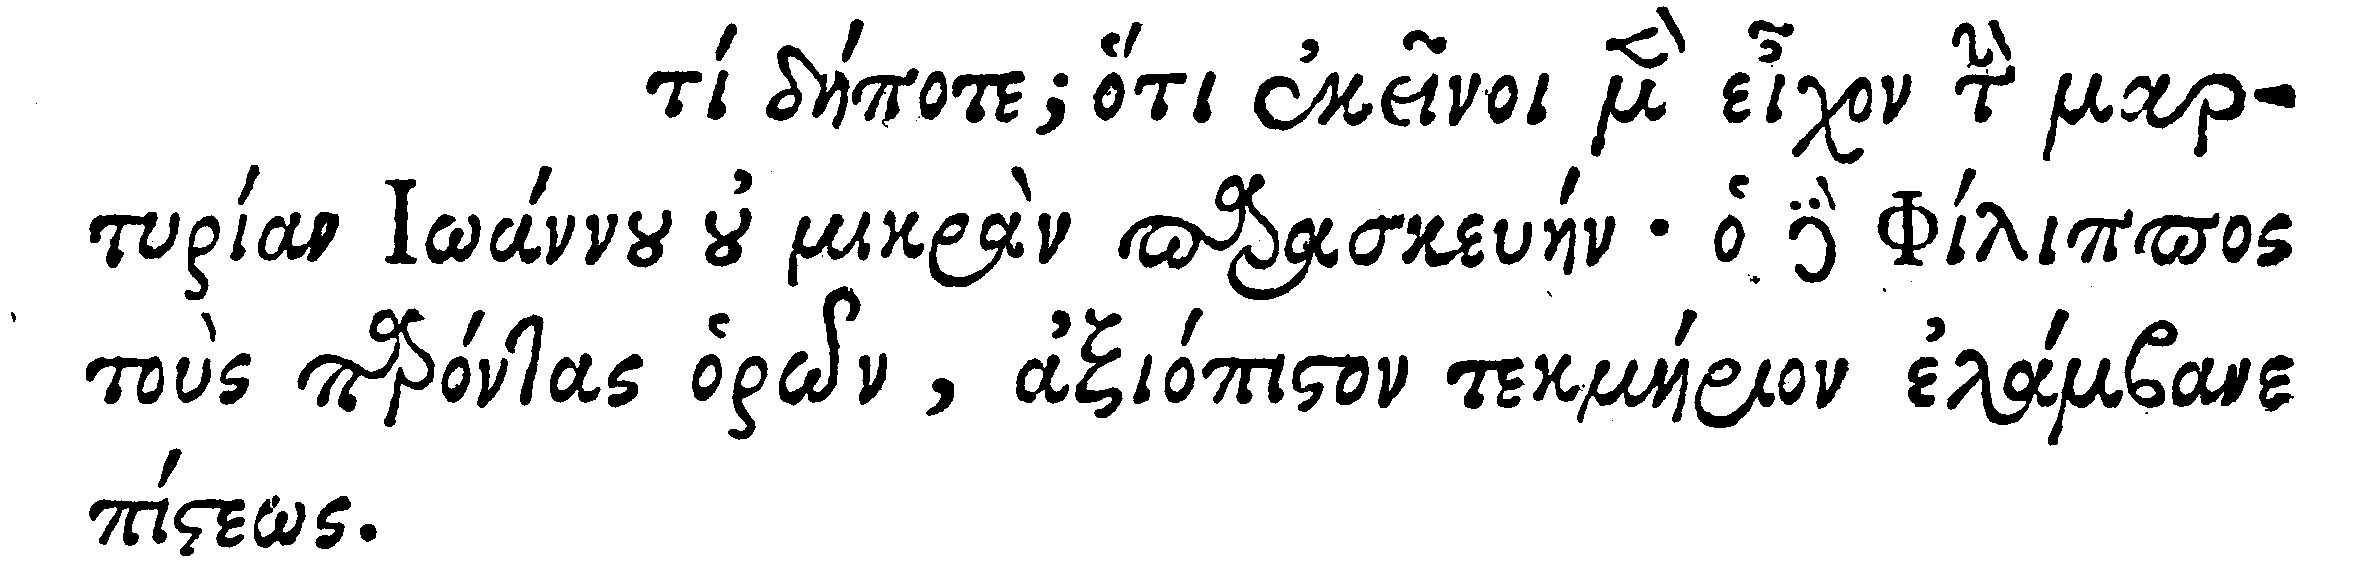 τί δήποτε; ὅτι ἐκεῖνοι μὲν εἶχον τὴν μαρ-
τυρίαν Ἰωάννου οὐ μικρὰν παρασκευήν· ὁ δὲ Φίλιππος
τοὺς παρόντας ὁρῶν, ἀξιόπιστον τεκμήριον ἐλάμβανε
πίστεως.